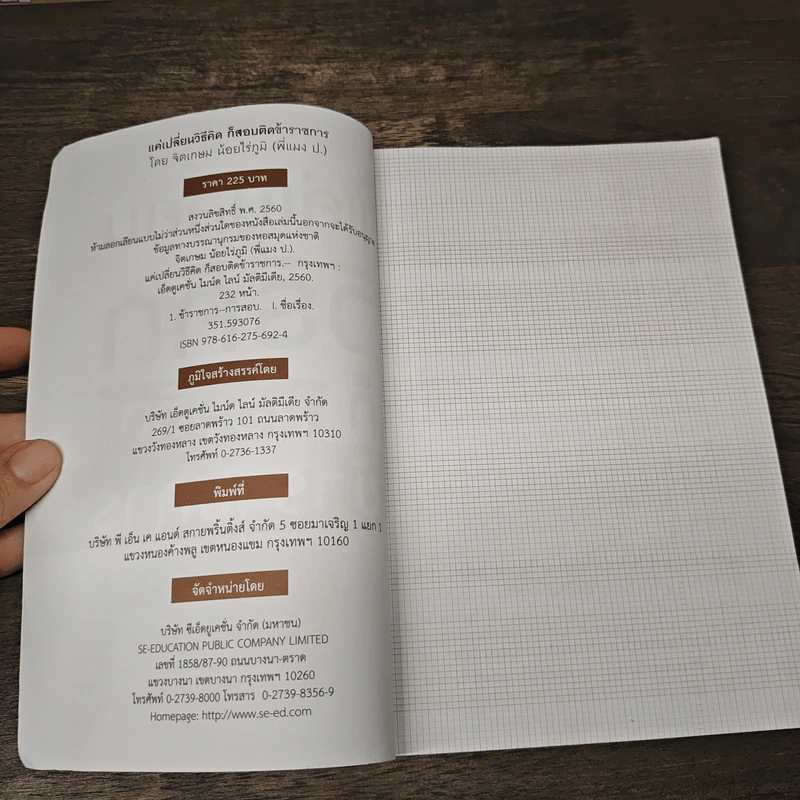 แค่เปลี่ยนวิธีคิด ก็สอบติดข้าราชการ
โดย จิตเกษม น้อยไร่ภูมิ (พี่แมง ป.)
ราคา 225 บาท
สงวนลิขสิทธิ์ พ.ศ. 2560
ห้ามลอกเลียนแบบไม่ว่าส่วนหนึ่งส่วนใดของหนังสือเล่มนี้นอกจากจะได้รับอนุญาต
ข้อมูลทางบรรณานุกรมของหอสมุดแห่งชาติ
จิตเกษม น้อยไร่ภูมิ (พี่แมง ป.).
แค่เปลี่ยนวิธีคิด ก็สอบติดข้าราชการ.-- กรุงเทพฯ :
เอ็ดดูเคชั่น ไมน์ด ไลน์ มัลติมีเดีย, 2560.
232 หน้า.
1. ข้าราชการ--การสอบ. I. ชื่อเรื่อง.
351.593076
ISBN 978-616-275-692-4
ภูมิใจสร้างสรรค์โดย
บริษัท เอ็ดดูเคชั่น ไมน์ด ไลน์ มัลติมีเดีย จำกัด
269/1 ซอยลาดพร้าว 101 ถนนลาดพร้าว
แขวงวังทองหลาง เขตวังทองหลาง กรุงเทพฯ 10310
โทรศัพท์ 0-2736-1337
พิมพ์ที่
บริษัท พี เอ็น เค แอนด์ สกายพริ้นติ้งส์ จำกัด 5 ซอยมาเจริญ 1 แยก 1
แขวงหนองค้างพลู เขตหนองแขม กรุงเทพฯ 10160
จัดจำหน่ายโดย
บริษัท ซีเอ็ดยูเคชั่น จำกัด (มหาชน)
SE-EDUCATION PUBLIC COMPANY LIMITED
เลขที่ 1858/87-90 ถนนบางนา-ตราด
แขวงบางนา เขตบางนา กรุงเทพฯ 10260
โทรศัพท์ 0-2739-8000 โทรสาร 0-2739-8356-9
Homepage: http://www.se-ed.com